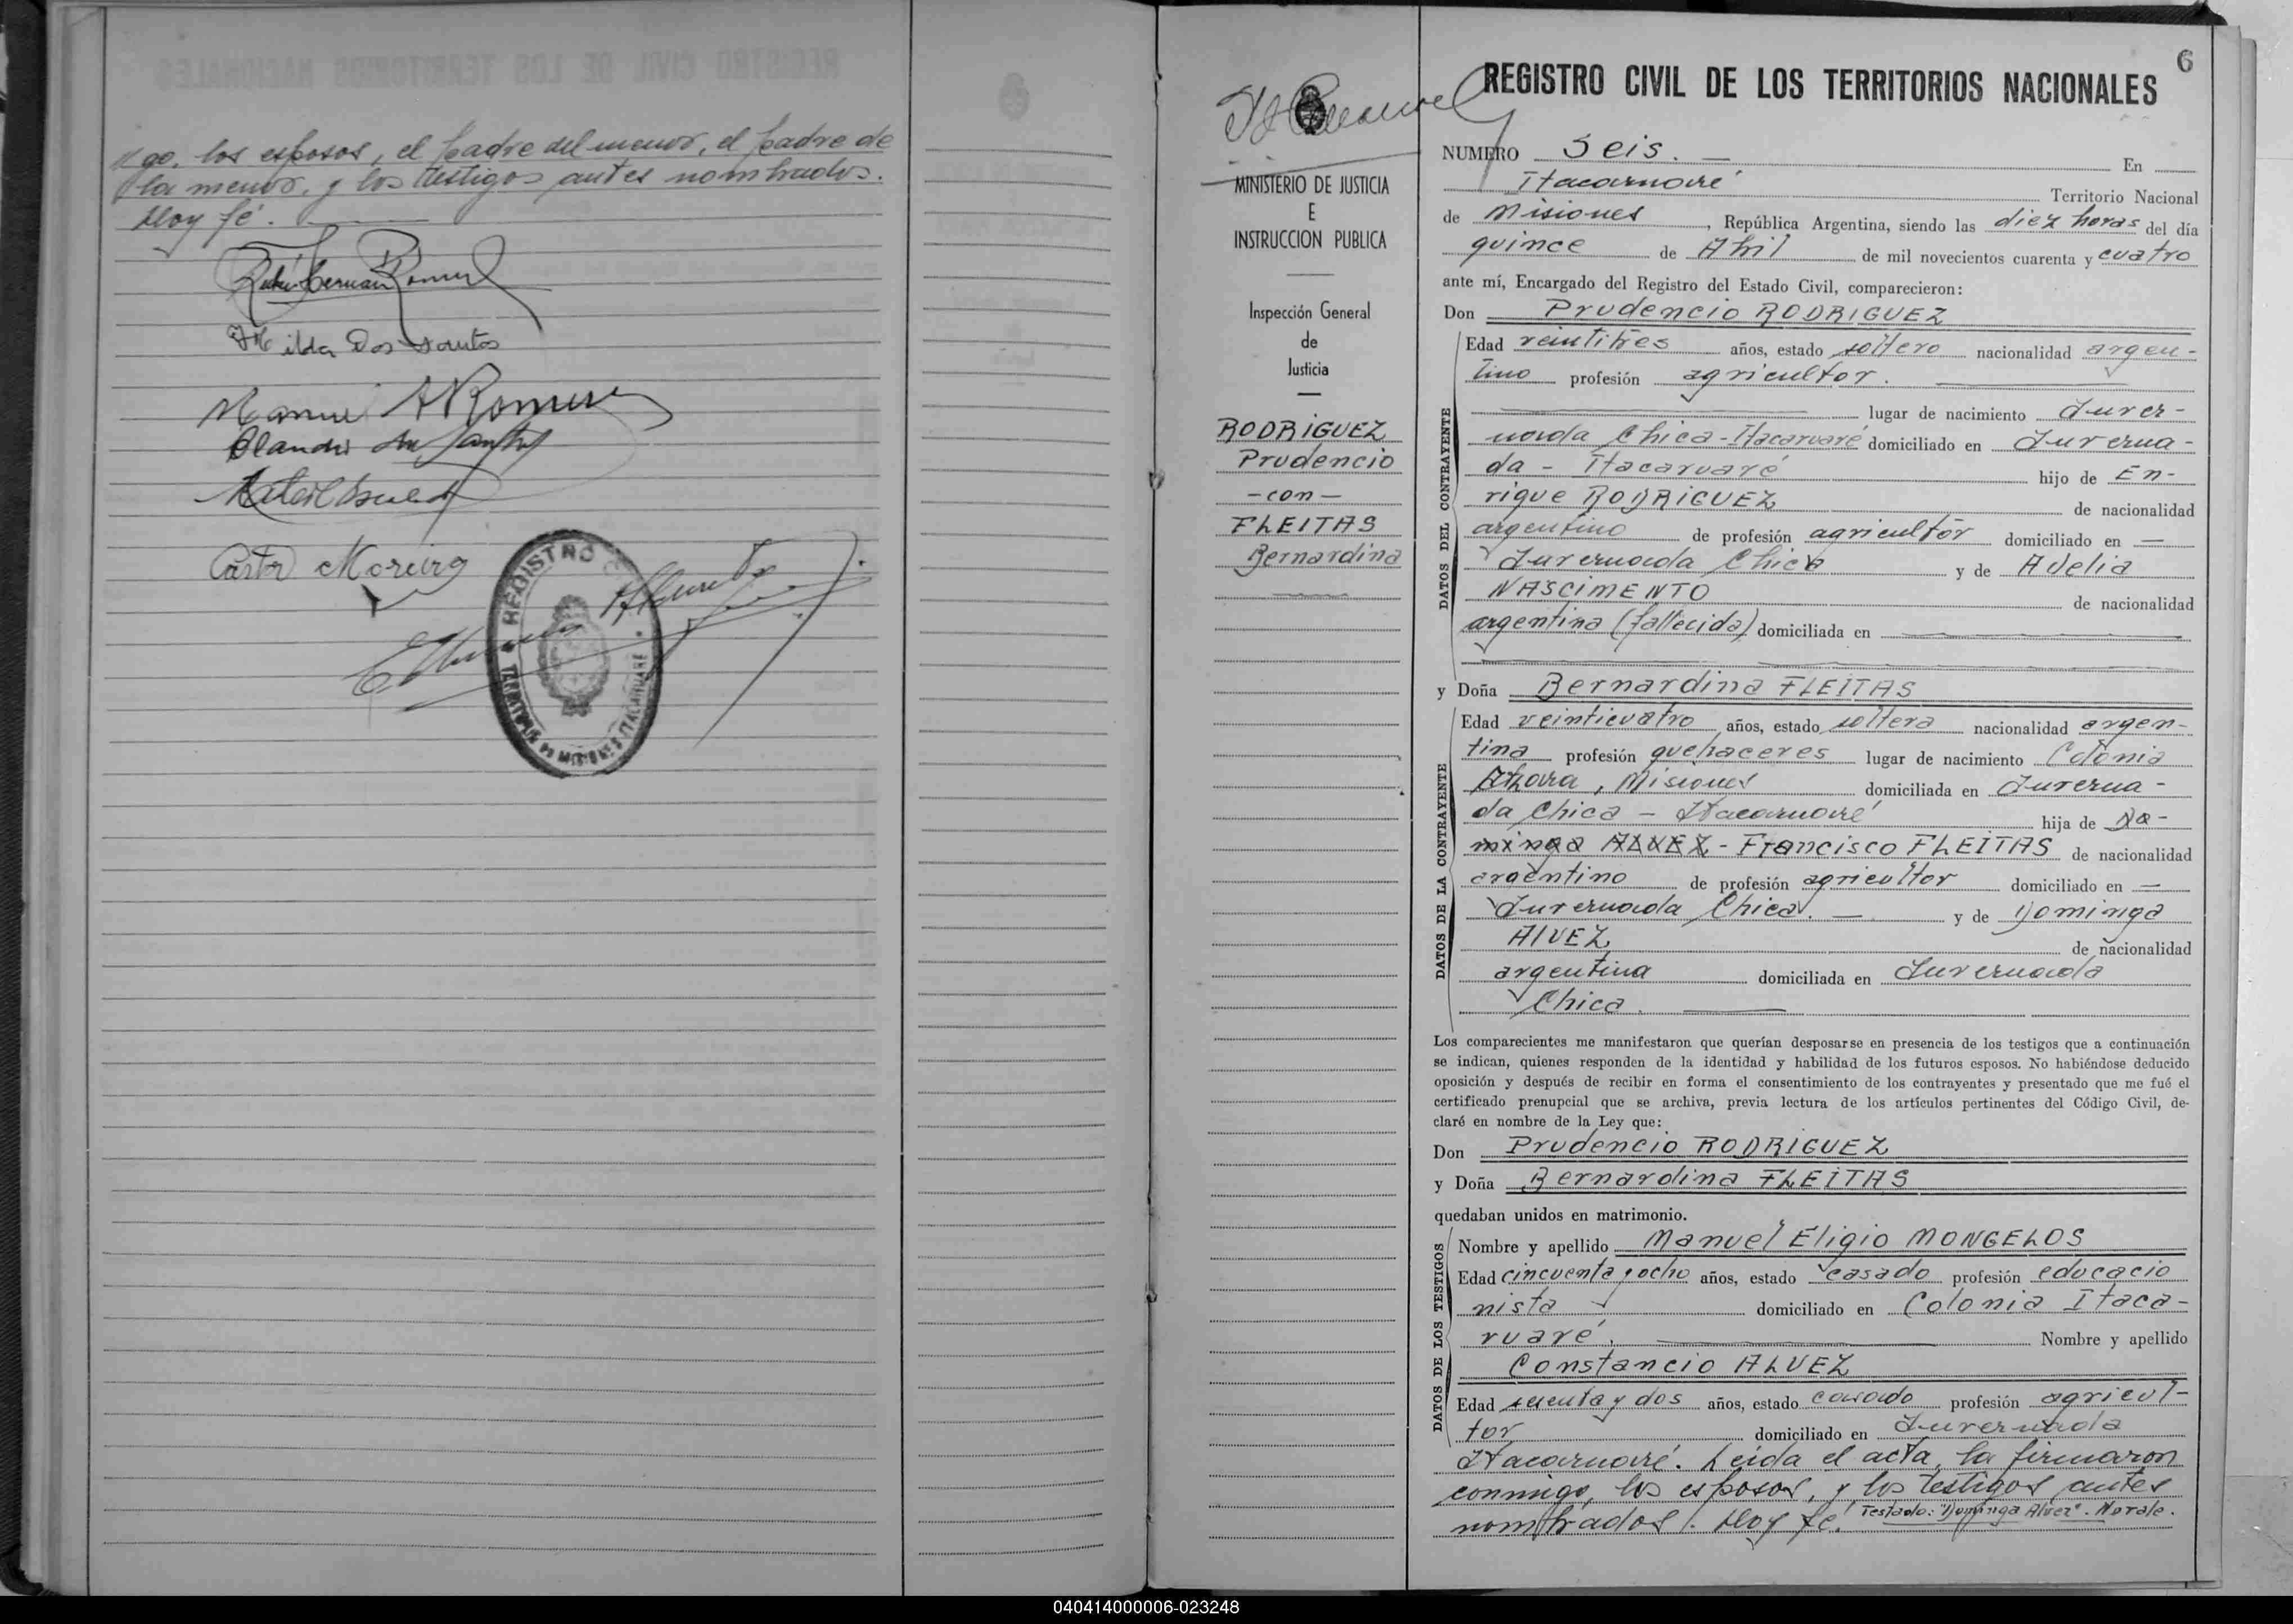 go, los esposos, el padre del menor, el padre de
la menor, y los testigos antes nombrados.
Doy fé.
Hilda Dos Santos
Manuel A Romero
Castor Moreira
REGISTRO
6
REGISTRO CIVIL DE LOS TERRITORIOS NACIONALES
MINISTERIO DE JUSTICIA
E
INSTRUCCION PUBLICA
Inspección General
de
Justicia
RODRIGUEZ
Prudencio
-con-
FLEITAS
Bernardina
NUMERO Seis. — En
Itacaruaré Territorio Nacional
de Misiones, República Argentina, siendo las diez horas del día
quince de Abril de mil novecientos cuarenta y cuatro
ante mí, Encargado del Registro del Estado Civil, comparecieron:
Don Prudencio RODRIGUEZ
DATOS DEL CONTRAYENTE
Edad veintitres años, estado soltero nacionalidad argen-
tino profesión agricultor.
lugar de nacimiento Inver-
nada Chica - Itacaruaré domiciliado en Inverna-
da - Itacaruaré hijo de En-
rique RODRIGUEZ de nacionalidad
argentino de profesión agricultor domiciliado en —
Invernada Chica y de Adelia
NASCIMENTO de nacionalidad
argentina (fallecida) domiciliada en
y Doña Bernardina FLEITAS
DATOS DE LA CONTRAYENTE
Edad veinticuatro años, estado soltera nacionalidad argen-
tina profesión quehaceres lugar de nacimiento Colonia
Misiones domiciliada en Inverna-
da Chica - Itacaruaré hija de Do-
minga ALVEZ - Francisco FLEITAS de nacionalidad
argentino de profesión agricultor domiciliado en —
Invernada Chica. — y de Dominga
ALVEZ de nacionalidad
argentina domiciliada en Invernada
Chica.
Los comparecientes me manifestaron que querían desposarse en presencia de los testigos que a continuación
se indican, quienes responden de la identidad y habilidad de los futuros esposos. No habiéndose deducido
oposición y después de recibir en forma el consentimiento de los contrayentes y presentado que me fué el
certificado prenupcial que se archiva, previa lectura de los artículos pertinentes del Código Civil, de-
claré en nombre de la Ley que:
Don Prudencio RODRIGUEZ
y Doña Bernardina FLEITAS
quedaban unidos en matrimonio.
DATOS DE LOS TESTIGOS
Nombre y apellido Manuel Eligio MONGELOS
Edad cincuenta y ocho años, estado casado profesión educacio
nista domiciliado en Colonia Itaca-
ruaré. Nombre y apellido
Constancio ALVEZ
Edad y dos años, estado casado profesión agricul-
tor domiciliado en Invernada
Itacaruaré. Leída el acta, la firmaron
conmigo, los esposos, y los testigos antes
nombrados. Doy fé. Testado: "Dominga Alvez". No vale.
040414000006-023248